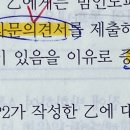 乙에게는 범인도피
문의견서를 제출하
이 있음을 이유로 증
P2가 작성한 乙에 대